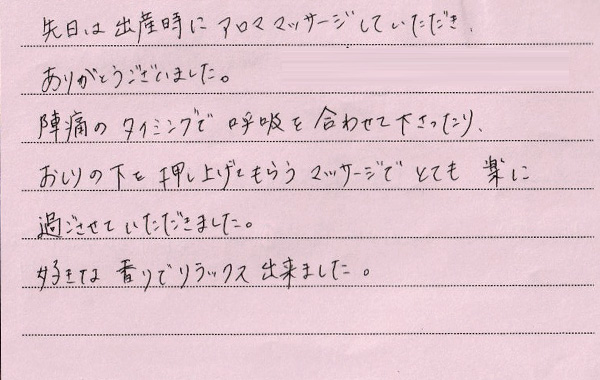 先日は出産時にアロママッサージしていただき、
ありがとうございました。
陣痛のタイミングで呼吸を合わせて下さったり、
おしりの下を押し上げてもらうマッサージでとても楽に
過ごさせていただきました。
好きな香りでリラックス出来ました。